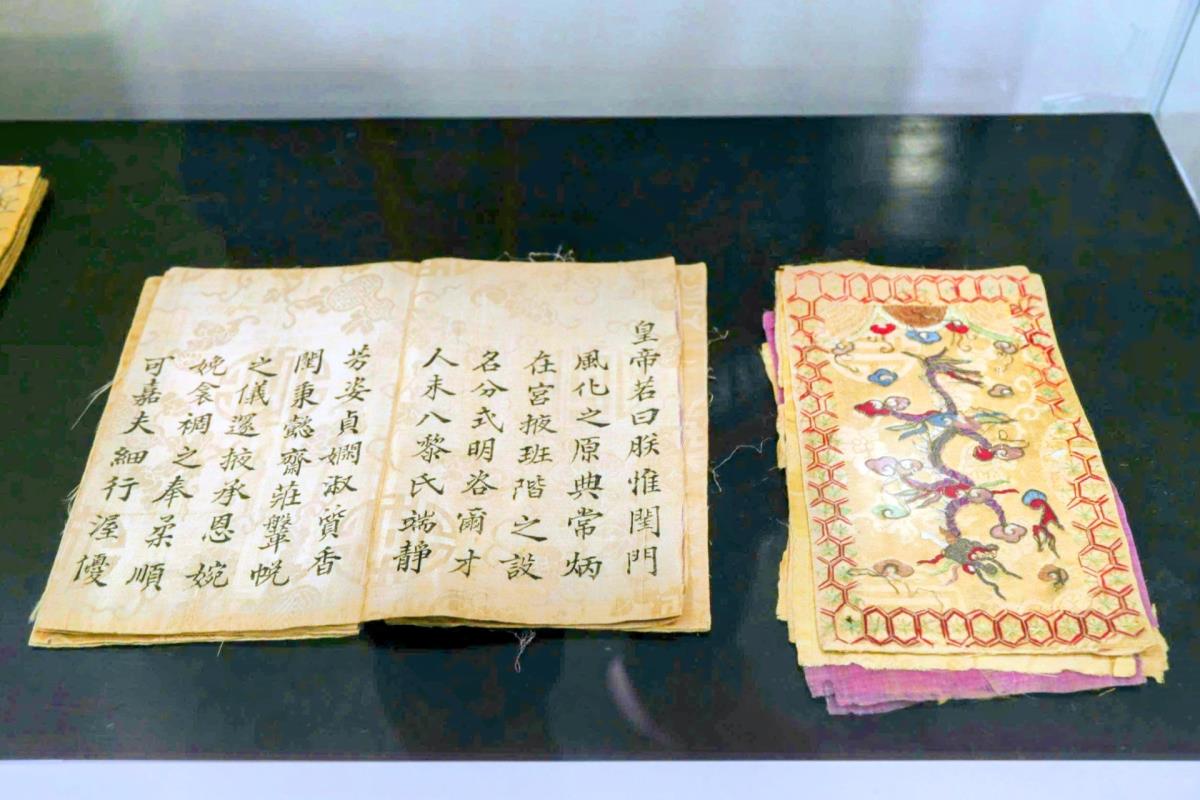 皇帝若曰朕惟閨門
風化之原典常炳
在宮掖班階之設
名分式明咨爾才
人耒八黎氏端靜
芳姿貞嫻淑質香
閨秉懿齋莊鞶帨
之儀掖承恩婉
娩衾裯之奉柔順
可嘉夫細行渥優